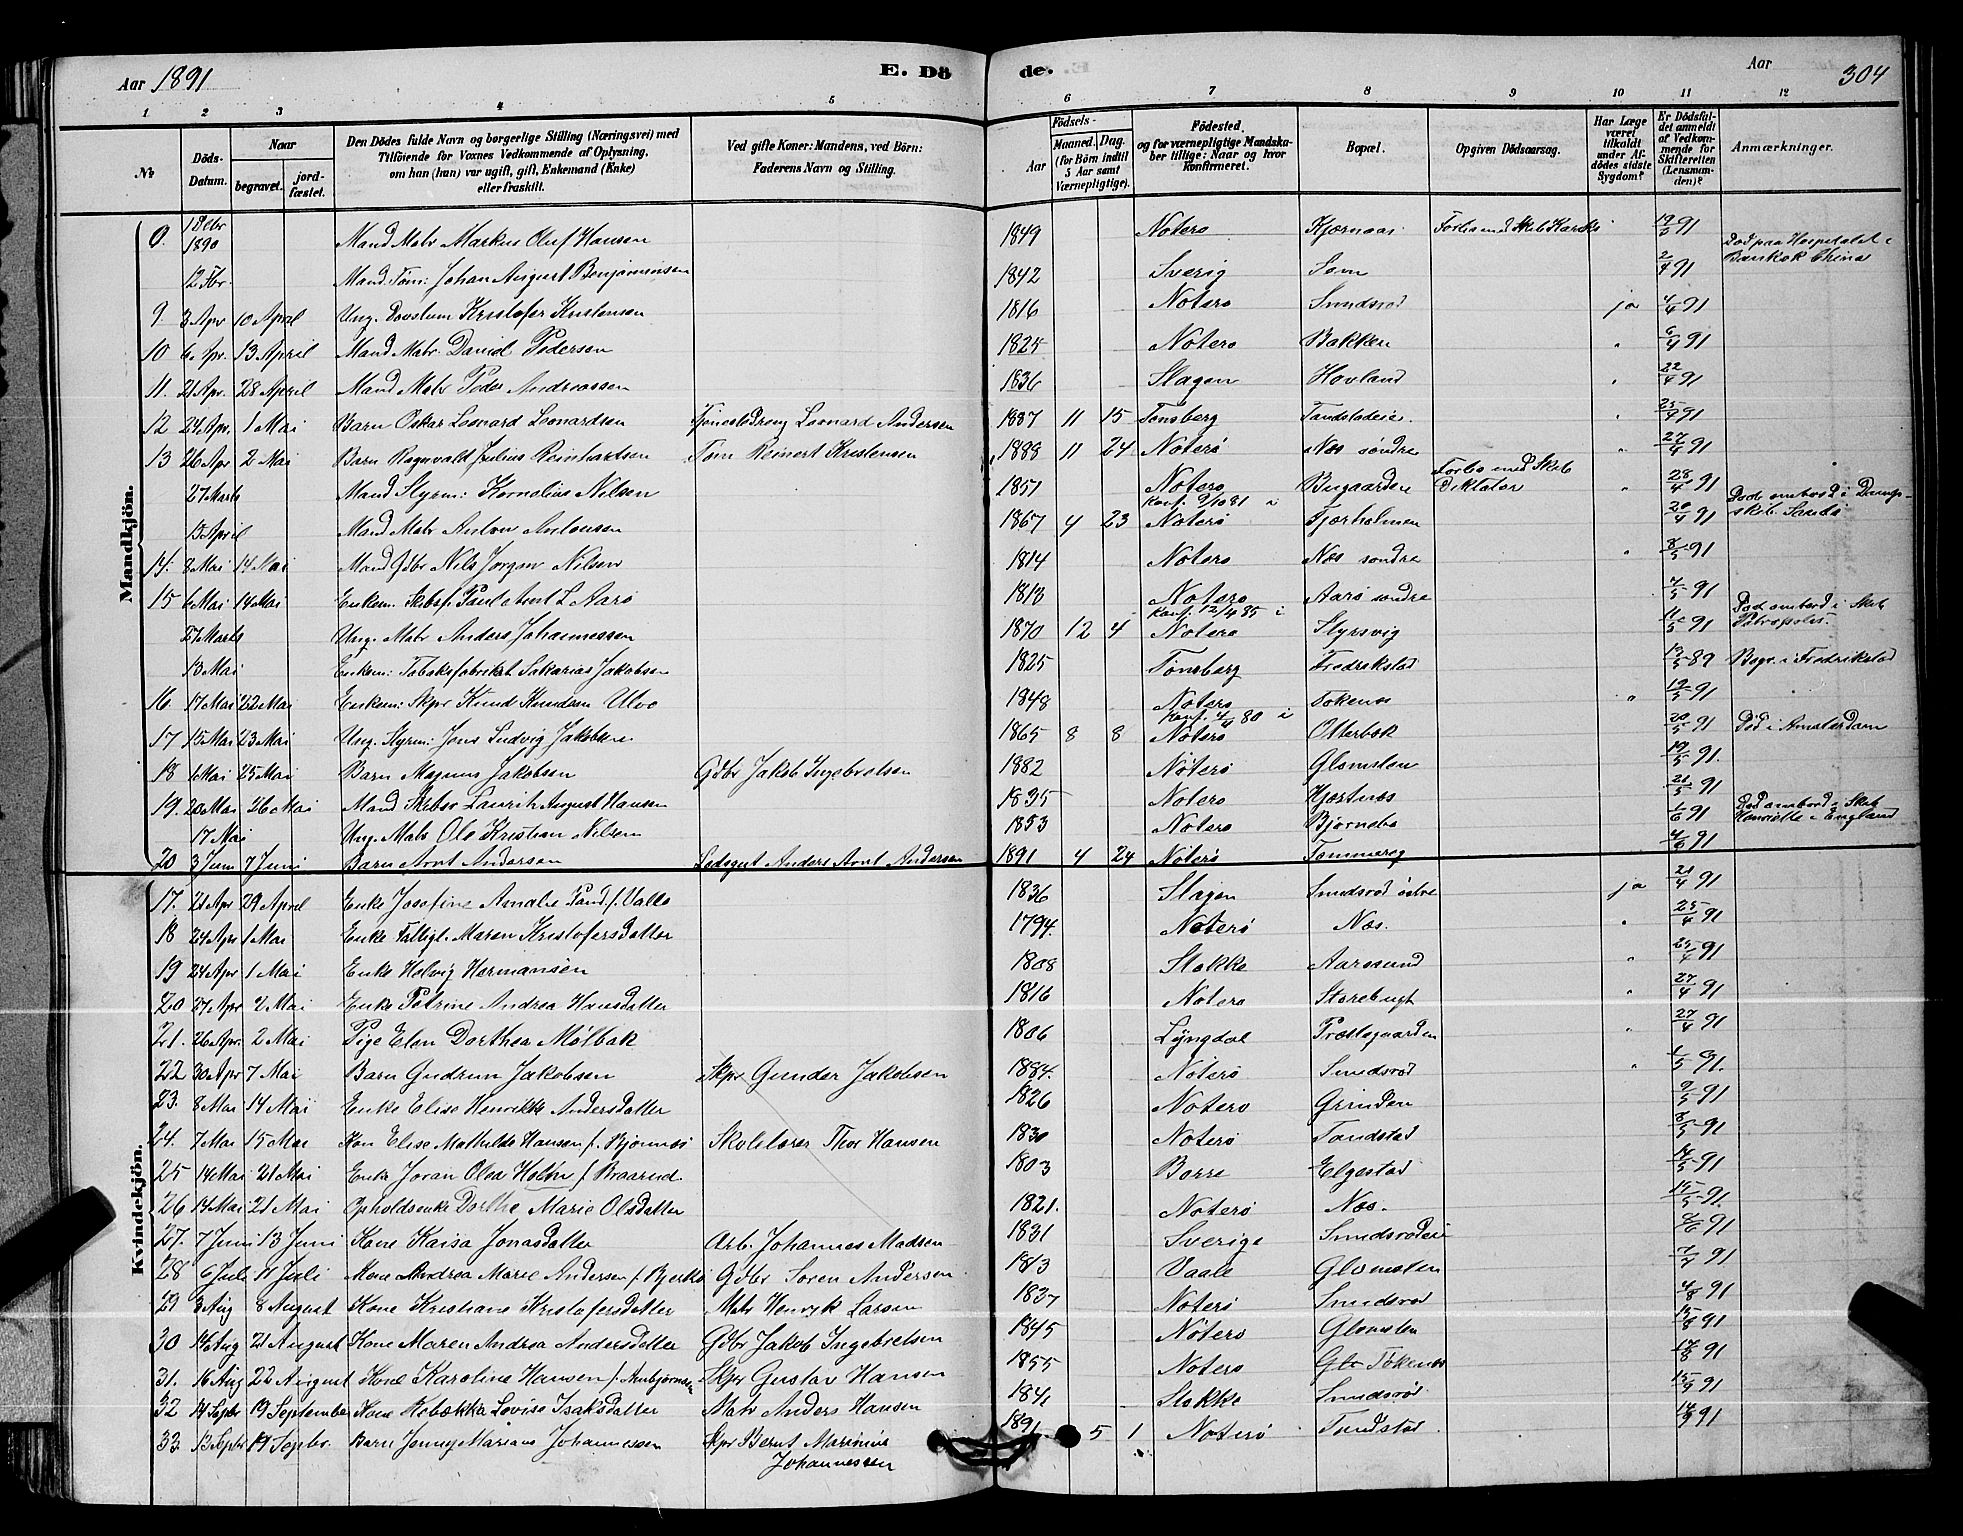 Aar 1891
E. Dö
de.
Aar
304
1 2 3 4 5 6 7 8 9 10 11 12
№
Döds-Datum.
Naar
begravet.
jord-fæstet.
Den Dödes fulde Navn og borgerlige Stilling (Næringsvei) med
Tilföiende for Voxnes Vedkommende af Oplysning,
om han (hun) var ugift, gift, Enkemand (Enke)
eller fraskilt.
Ved gifte Koner: Mandens, ved Börn:
Faderens Navn og Stilling.
Födsels-
Aar
Maaned. Dag.
(for Börn indtil
5 Aar samt
Værnepligtige).
Födested,
og for værnepligtige Mandska-
ber tillige: Naar og hvor
Konfirmeret.
Bopæl.
Opgiven Dödsaarsag.
Har Læge
været
tilkaldt
under Af-
dödes sidste
Sygdom?
Er Dödsfal-
det anmeldt
af Vedkom-
mende for
Skifteretten
(Lensman-
den)?
Anmærkninger.
Mandkjön.
0. 1890 Mand Matr Markus Oluf Hansen 1849 Notero Kjærnaas 91
12 Fbr. Mand Tøm: Johan August Benjaminsen 1842 Sverig 2/4 91 Død paa Hospitalet i Bankok China
9. 3 Apr 10 April Ung. Kristofer Kristensen 1816 Notero Smidsrod ja 4/4 91
10 6 Apr. 13 April Mand Matr. Daniel Pedersen 1825 Notero Bakken " 6/4 91
11. 21 Apr. 28 April Mand Matr Peder Andreassen 1836 Slagen Hovland " 22/4 91
12 24 Apr. 1 Mai Barn Oskar Leonard Leonardsen Tjenestedreng Leonard Andersen 1887 11 15 Tønsberg " 25/4 91
13 26 Apr 2 Mai Barn Ragnvald Julius Reinhartsen Tøm Reinert Kristensen 1888 11 24 Noterø Næs søndre " 27/4 91
27 Marts Mand Styrm: Kornelius Nilsen 1851 Notero Bugaarden Forlis med Skib Diktator " 28/4 91
15 April Mand Matr Anton Antonsen 1867 4 23 Konf. 9/10 81 i Noterø Fjærholmen 20/4 91 Død ombord i Damp-skib
14. 8 Mai 14 Mai Mand Gdbr Nils Jørgen Nilsen 1814 Notero Næs søndre " 8/5 91
15 6 Mai 14 Mai Enkem. Skibsf. Paul Aarø 1813 Notero Aarø søndre 4/5 91
27 Marts Ung. Matr Anders Johannessen 1870 12 4 Konf. 12/4 85 i Notero Styrsvig 11/5 91 Død ombord i Skib Petropolis.
13 Mai Enkem: Tobaksfabrikt Sakarias Jakobsen 1825 Tønsberg Fredrikstad 89 Begr. i Fredrikstad
16 17 Mai 22 Mai Enkem: Skpr Knud Knudsen Ulvø 1848 Notero Tokenes " 19/5 91
17 15 Mai 23 Mai Ung. Styrm: Jens Ludvig Jakobsen 1865 8 8 Konf. 80 i Noterø Otterbek 20/5 91 Død i Amsterdam
18 6 Mai 25 Mai Barn Magnus Jakobsen Gdbr Jakob Ingebretsen 1882 Nøterø Glomsten 19/5 91.
19. 20 Mai 26 Mai Mand Laurits August Hansen 1835 Notero Hjertnes 21/5 91
17 Mai Ung. Matr Ole Kristian Nilsen 1853 Notero Bjørnebo 1/6 91 Død ombord i Skib Henriette i England
20 3 Juni 7 Juni Barn Arnt Andersen Anders Arnt Andersen 1891 4 24 Nøterø 4/6 91
Kvindekjön.
17. 21 Apr 29 April Enke Josefine Amalie f. Vallo 1836 Slagen Smidsrød østre ja 21/4 91
18 24 Apr 1 Mai Enke Fattigl. Maren Kristofersdatter 1794. Noterø Næs. " 25/4 91
19 24 Apr 1 Mai Enke Helvig Hermansen 1808 Stokke Aarøsund " 25/4 91
20 27 Apr 2 Mai Enke Petrine Andrea Hansdatter 1816 Notero Storebugt " 27/4 91
21. 26 Apr. 2 Mai Pige Elen Dorthea Mølbak 1806 Lyngdal Præstegaarden " 27/4 91
22 30 Apr 7 Mai Barn Gudrun Jakobsen Skpr Gunder Jakobsen 1884. Nøterø Smidsrød " 1/5 91.
23. 8 Mai 14 Mai Enke Elise Henrikke Andersdatter 1826 Notero Grinden 9/5 91
24. 7 Mai 15 Mai Kone Elise Mathilde Hansen f. Bjønnes Skolelærer Thor Hansen 1830 Noterø Tandstad 8/5 91
25 14 Mai 21 Mai Enke Joran Olea Holm f. Braarud 1803 Borre Elgestad 14/5 91
26 14 Mai 21 Mai Opholdsenke Dorthe Marie Olsdatter 1821. Noterø Næs. 15/5 91.
27. 7 Juni 13 Juni Kone Kaisa Jonasdatter Arb. Johannes Madsen 1831 Sverige Smidsrødeie 91
28 6 Juli 11 Juli Kone Andrea Marie Andersen f. Bjerkø Gdbr Søren Andersen 1813 Vaale Glomsten 7/7 91
29 3 Aug 8 August Kone Kristiane Kristofersdatter Matr Henryk Larsen 1837 Noterø Smidsrod 4/8 91
30 14 Aug 21 August Kone Maren Andrea Andersdatter Gdbr Jakob Ingebretsen 1845 Nøtero Glomsten 15/8 91
31. 16 Aug 22 August Kone Karoline Hansen f. Arnbjørnsen Skpr Gustav Hansen 1855 Notero Tøkenes 17/8 91
32 14 Septbr 19 September Kone Rebækka Lovise Isaksdatter Matr Anders Hansen 1841 Stokke Smidsrød 15/9 91
33. 13 Septbr 19 Septbr. Barn Jenny Mariane Johannessen Skpr Bernt Marinius Johannessen 1891 5 1 Noterø Tandstad 14/9 91